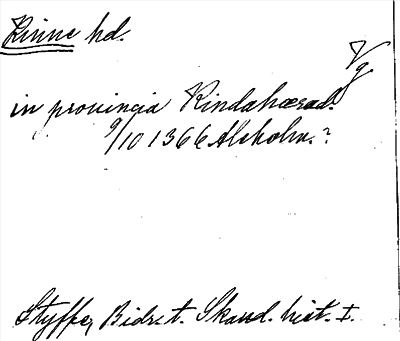 Kinne hd.
Vg
in provincia Kindahærad.
9/10 1366 Alsholm.?
Styffe, Bidr. t. Skand. hist. I.